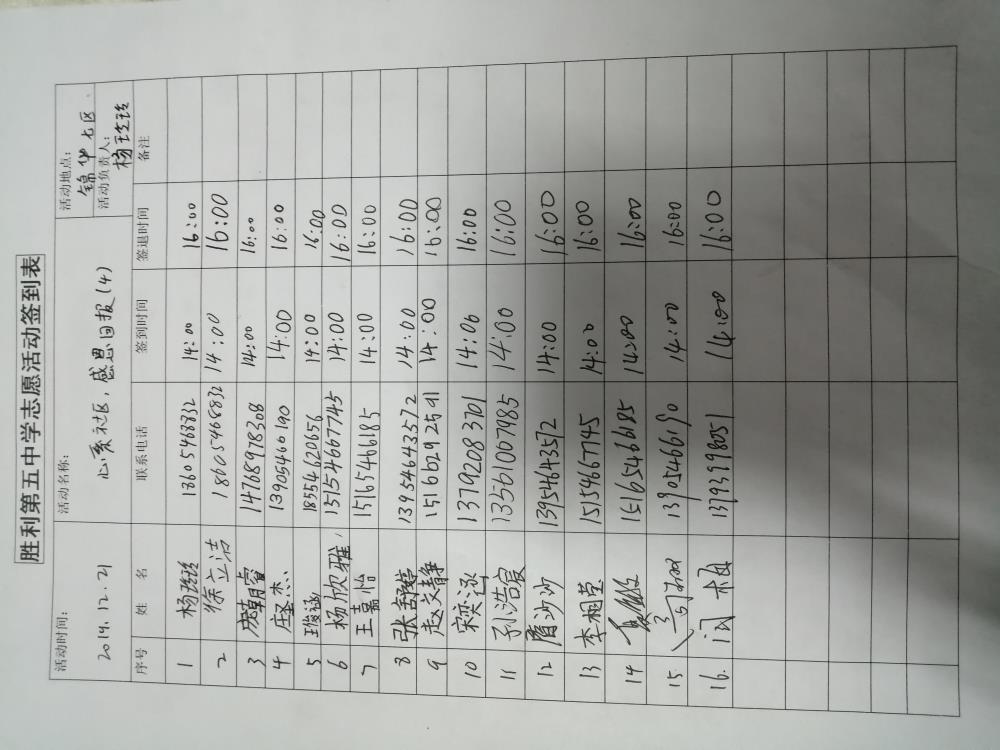 胜利第五中学志愿活动签到表
活动时间: 活动名称: 活动地点:
2019.12.21 心系社区,感恩回报(4) 锦华七区
活动负责人:
杨玲玲
序号 姓名 联系电话 签到时间 签退时间 备注
1 杨玲玲 18605468832 14:00 16:00
2 徐立洁 18605468832 14:00 16:00
3 14768978308 14:00 16:00
4 13905466190 14:00 16:00
5 18554620656 14:00 16:00
6 杨欣雅 15154667745 14:00 16:00
7 王嘉怡 15165466185 14:00 16:00
8 张舒婷 13954643572 14:00 16:00
9 赵文静 15166292591 14:00 16:00
10 宋奕涵 13792083701 14:00 16:00
11 孙浩宸 13561067985 14:00 16:00
12 13954643572 14:00 16:00
13 李相莹 15154667745 14:00 16:00
14 15165466185 14:00 16:00
15. 13905466190 14:00 16:00
16. 闫桐 13793998051 14:00 16:00